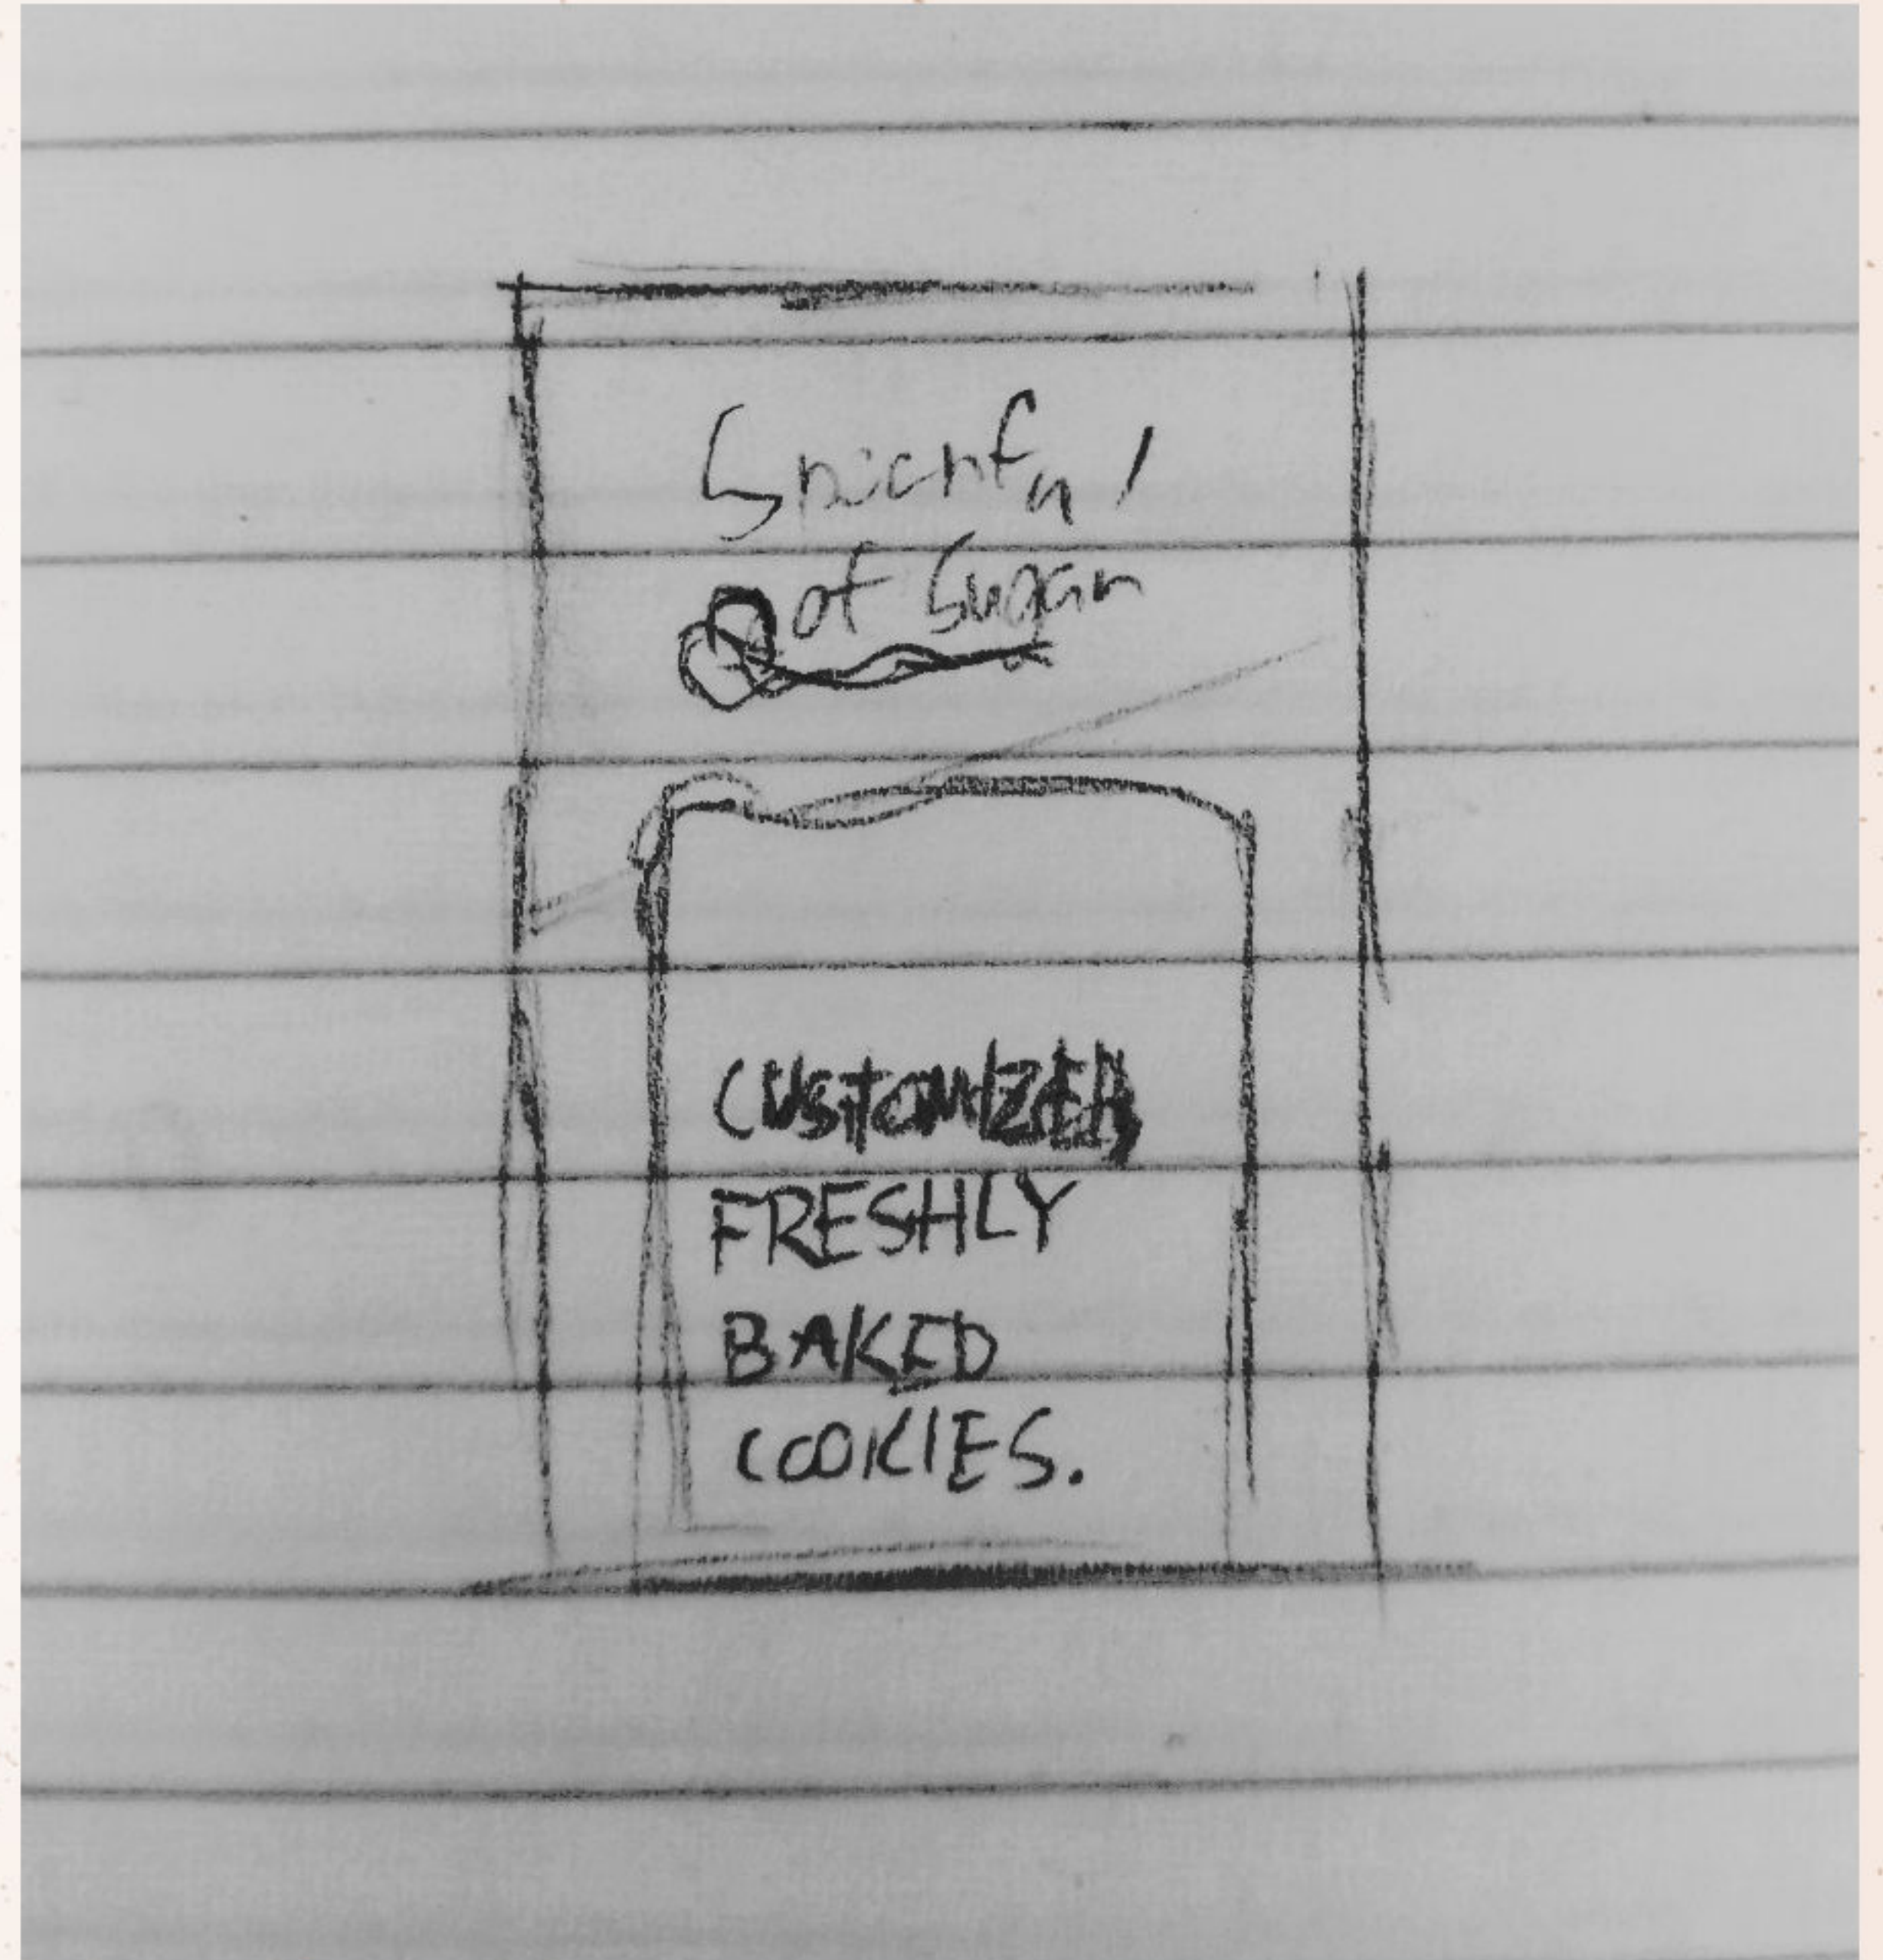 of Sugar
CUSTOMIZED,
FRESHLY
BAKED
COOKIES.